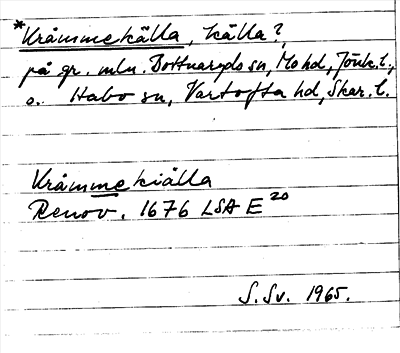 *Kråmmekälla, källa?,
på gr. mln. Bottnaryds sn, Mo hd, Jönk. l.,
o. Habo sn, Vartofta hd, Skar. l.
Kråmmekiälla
Renov. 1676 LSA E 20
S. Sv. 1965.